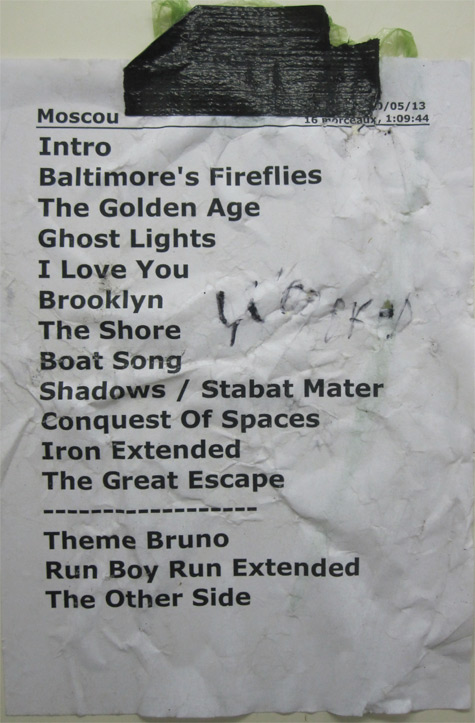 Moscou
/05/13
16 morceaux, 1:09:44
Intro
Baltimore's Fireflies
The Golden Age
Ghost Lights
I Love You
Brooklyn
The Shore
Boat Song
Shadows / Stabat Mater
Conquest Of Spaces
Iron Extended
The Great Escape
------------------
Theme Bruno
Run Boy Run Extended
The Other Side